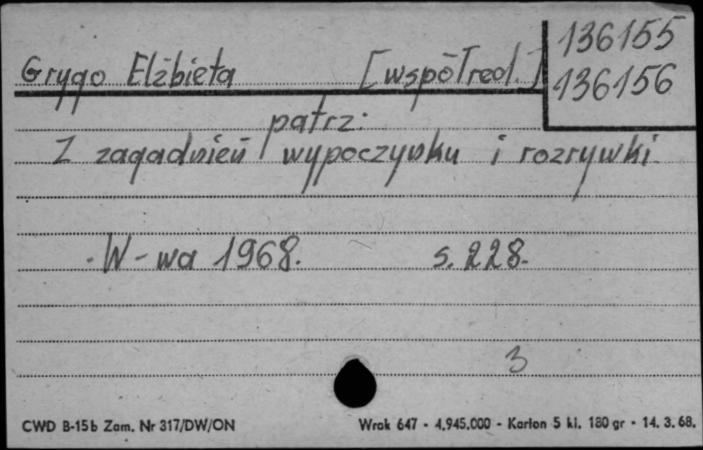 136155
Grygo Elżbieta [współred.] 136156
patrz:
Z zagadnień wypoczynku i rozrywki.
W-wa 1968. s. 228.
3
CWD B-15b Zam. Nr 317/DW/ON Wrok 647 - 4.945.000 - Karton 5 kl. 180 gr - 14. 3. 68.